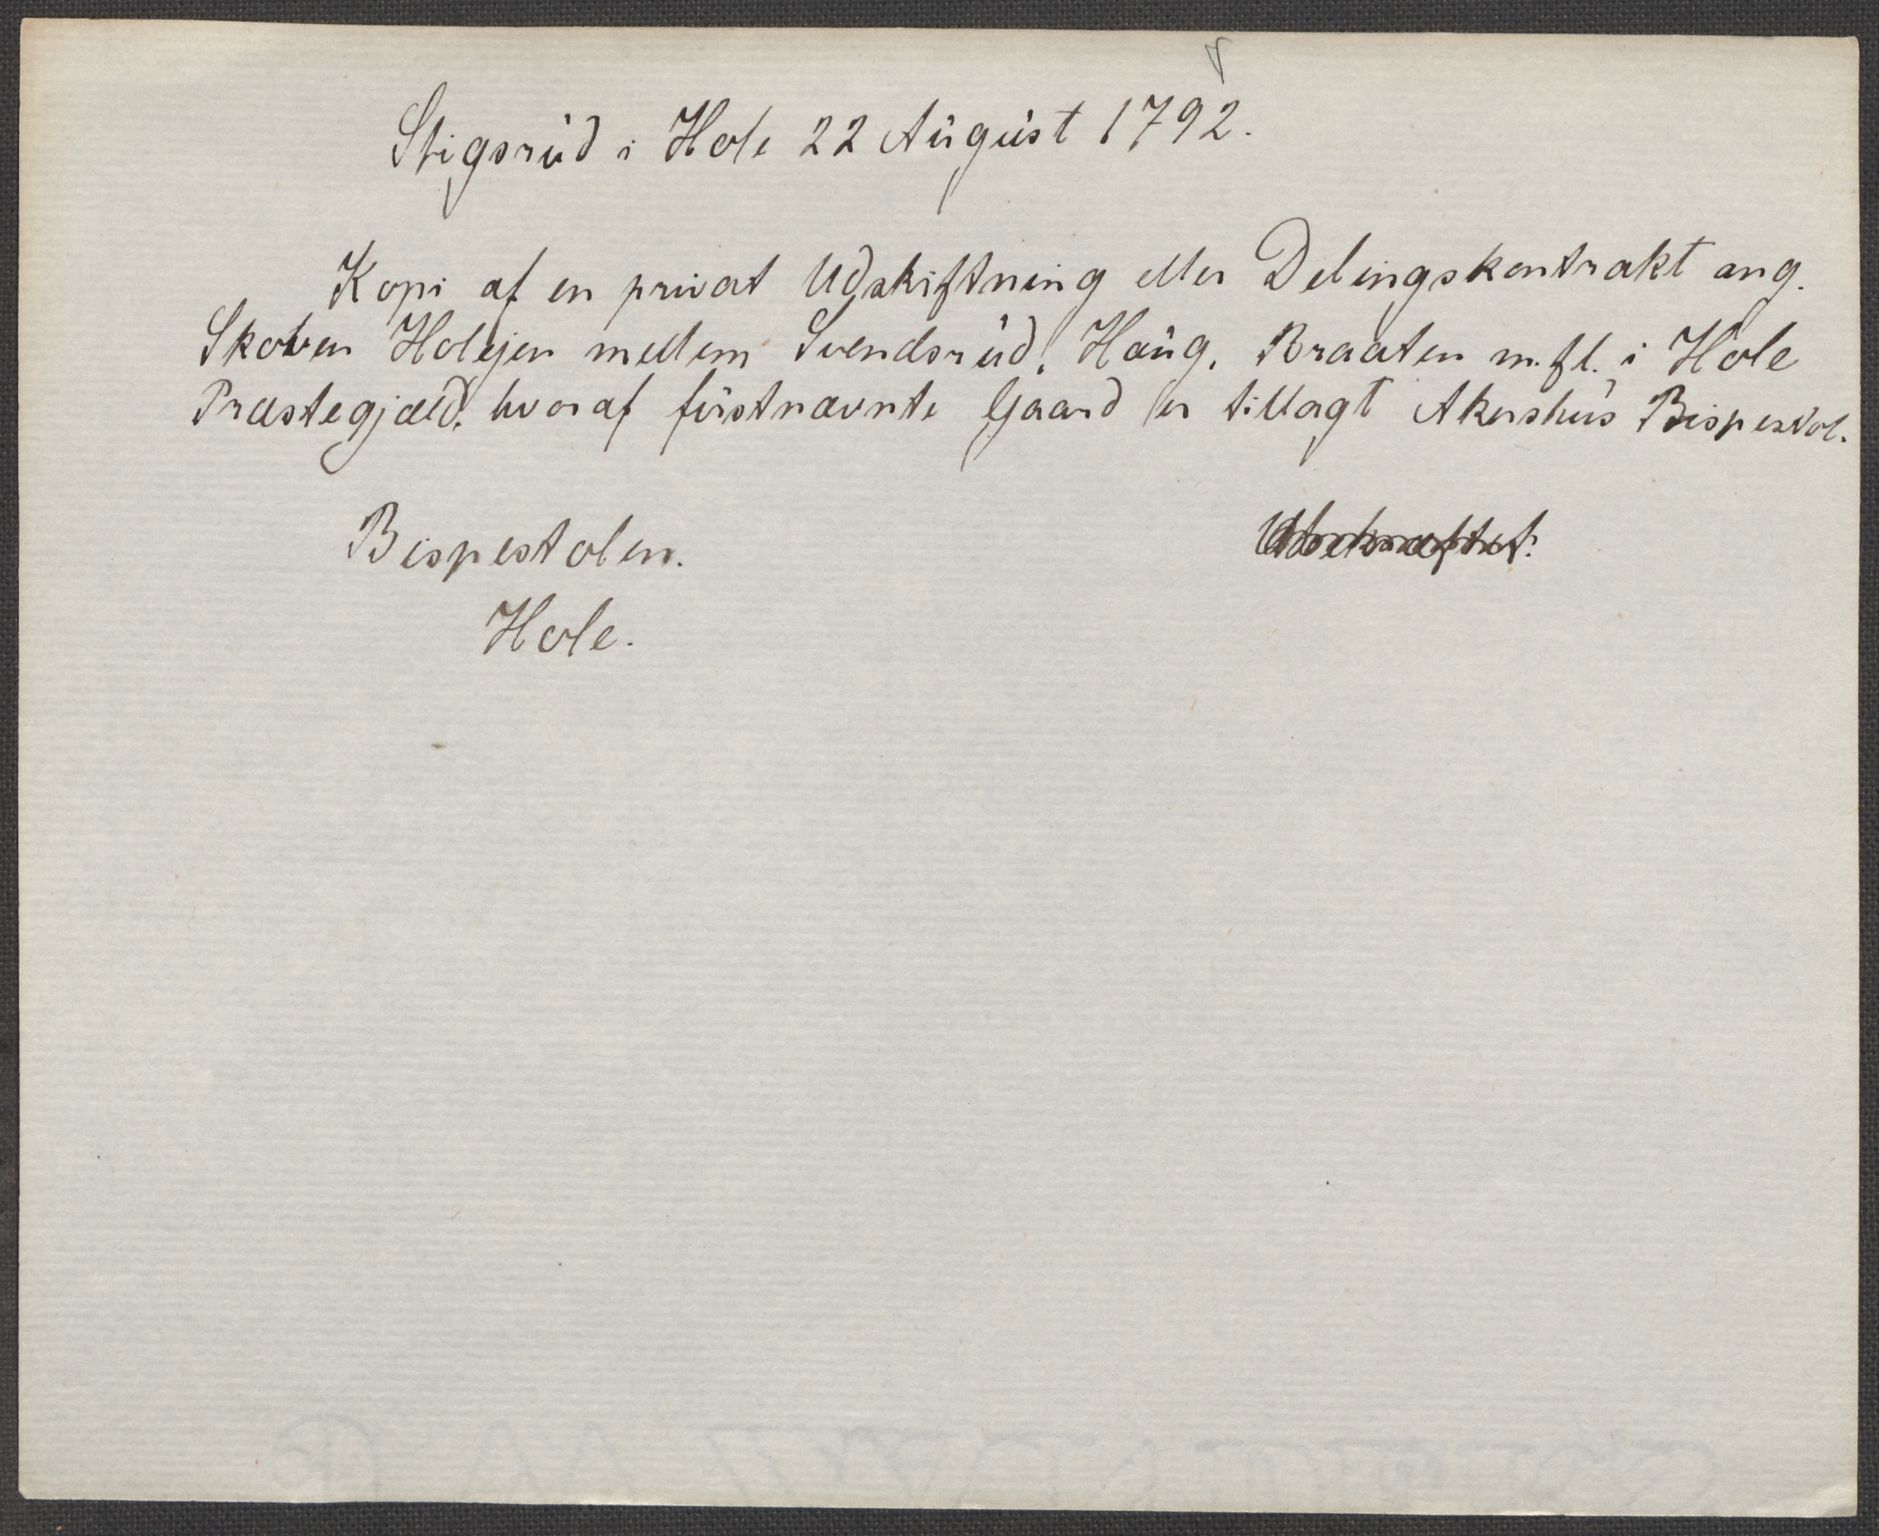 Stigsrud i Hole 22 August 1792.
Kopi af en privat Udskiftning eller Delingskontrakt ang.
Skoven Holejen mellem Svendsrud, Haug, Braaten m.fl. i Hole
Præstegjæld, hvoraf førstnævnte Gaard er tillagt Akershus Bispestol.
Bispestolen.
Ubekræftet.
Hole.